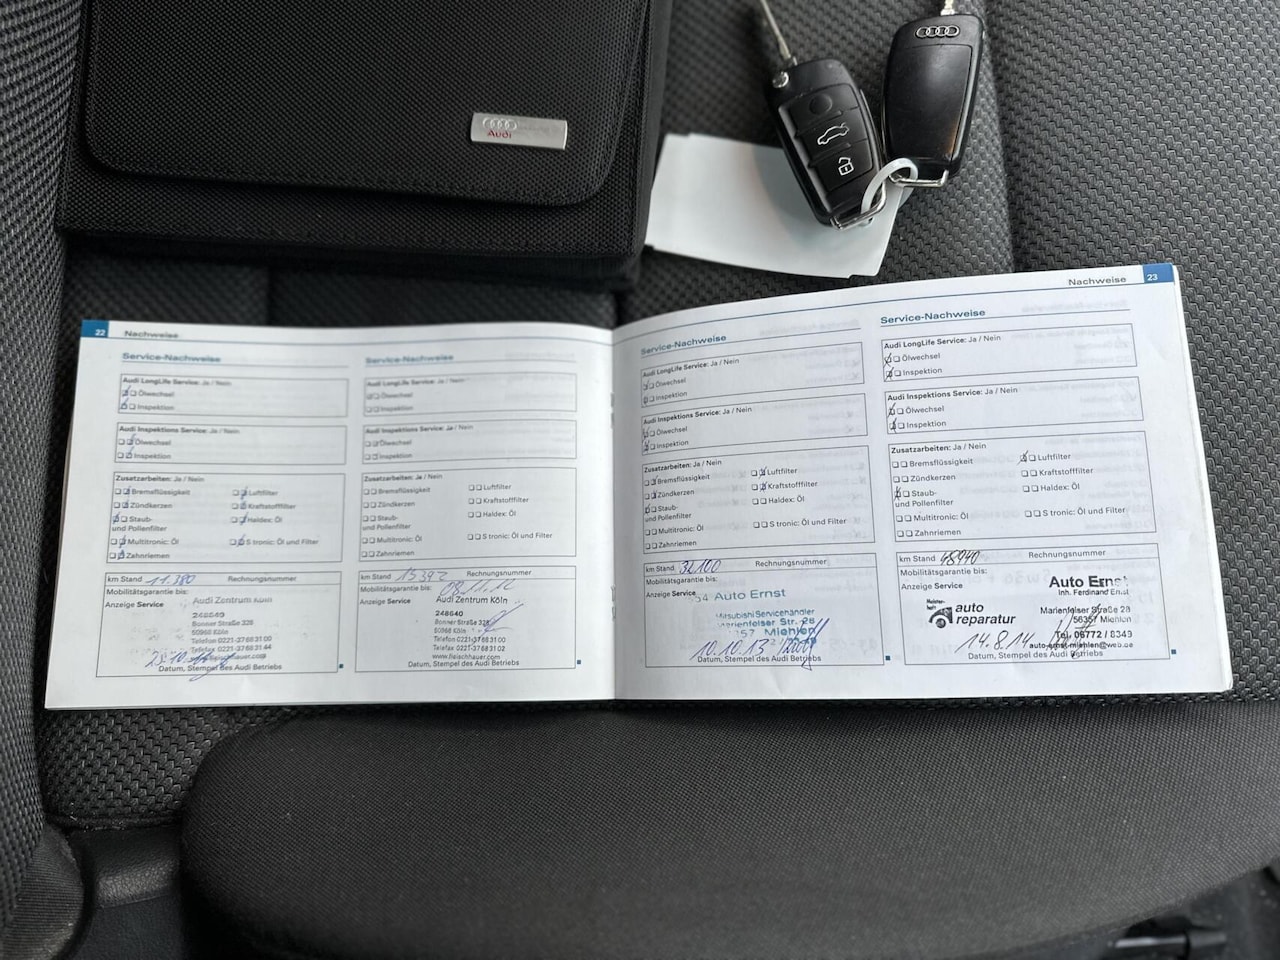 Audi
22
Nachweise
Service-Nachweise
Audi LongLife Service: Ja / Nein
Ölwechsel
Inspektion
Audi Inspektions Service: Ja / Nein
Ölwechsel
Inspektion
Zusatzarbeiten: Ja / Nein
Bremsflüssigkeit
Luftfilter
Zündkerzen
Kraftstofffilter
Staub-
und Pollenfilter
Haldex: Öl
Multitronic: Öl
S tronic: Öl und Filter
Zahnriemen
km Stand 11.380 Rechnungsnummer
Mobilitätsgarantie bis:
Anzeige Service
Audi Zentrum Köln
248640
Bonner Straße 328
50968 Köln
Telefon 0221-37 68 31 00
Telefax 0221-37 68 31 44
Datum, Stempel des Audi Betriebs
Service-Nachweise
Audi LongLife Service: Ja / Nein
Ölwechsel
Inspektion
Audi Inspektions Service: Ja / Nein
Ölwechsel
Inspektion
Zusatzarbeiten: Ja / Nein
Bremsflüssigkeit
Luftfilter
Zündkerzen
Kraftstofffilter
Staub-
und Pollenfilter
Haldex: Öl
Multitronic: Öl
S tronic: Öl und Filter
Zahnriemen
km Stand 15392 Rechnungsnummer
Mobilitätsgarantie bis: 08.11.12
Anzeige Service
Audi Zentrum Köln
248640
Bonner Straße 328
50968 Köln
Telefon 0221-37 68 31 00
Telefax 0221-37 68 31 02
www.fleischhauer.com
Datum, Stempel des Audi Betriebs
Service-Nachweise
Audi LongLife Service: Ja / Nein
Ölwechsel
Inspektion
Audi Inspektions Service: Ja / Nein
Ölwechsel
Inspektion
Zusatzarbeiten: Ja / Nein
Bremsflüssigkeit
Luftfilter
Zündkerzen
Kraftstofffilter
Staub-
und Pollenfilter
Haldex: Öl
Multitronic: Öl
S tronic: Öl und Filter
Zahnriemen
km Stand 32100 Rechnungsnummer
Mobilitätsgarantie bis:
Anzeige Service
Auto Ernst
Mitsubishi Servicehändler
Marienfelser Str. 28
Miehlen
10.10.13
Datum, Stempel des Audi Betriebs
Nachweise
23
Service-Nachweise
Audi LongLife Service: Ja / Nein
Ölwechsel
Inspektion
Audi Inspektions Service: Ja / Nein
Ölwechsel
Inspektion
Zusatzarbeiten: Ja / Nein
Bremsflüssigkeit
Luftfilter
Zündkerzen
Kraftstofffilter
Staub-
und Pollenfilter
Haldex: Öl
Multitronic: Öl
S tronic: Öl und Filter
Zahnriemen
km Stand 48940 Rechnungsnummer
Mobilitätsgarantie bis:
Anzeige Service
Auto Ernst
Inh. Ferdinand Ernst
Meister-
haft
auto
reparatur
Marienfelser Straße 28
56357 Miehlen
Tel. 06772 / 8349
auto-ernst-miehlen@web.de
14.8.14
Datum, Stempel des Audi Betriebs